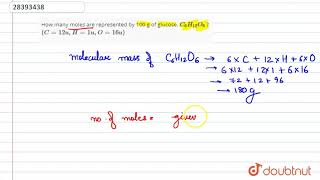 28393438
How many moles are represented by 100 g of glucose, C₆H₁₂O₆ ?
(C = 12u, H = 1u, O = 16u)
molecular mass of C₆H₁₂O₆ → 6×C + 12×H + 6×O
→ 6×12 + 12×1 + 6×16
→ 72 + 12 + 96
→ 180 g
no. of moles = given
doubtnut